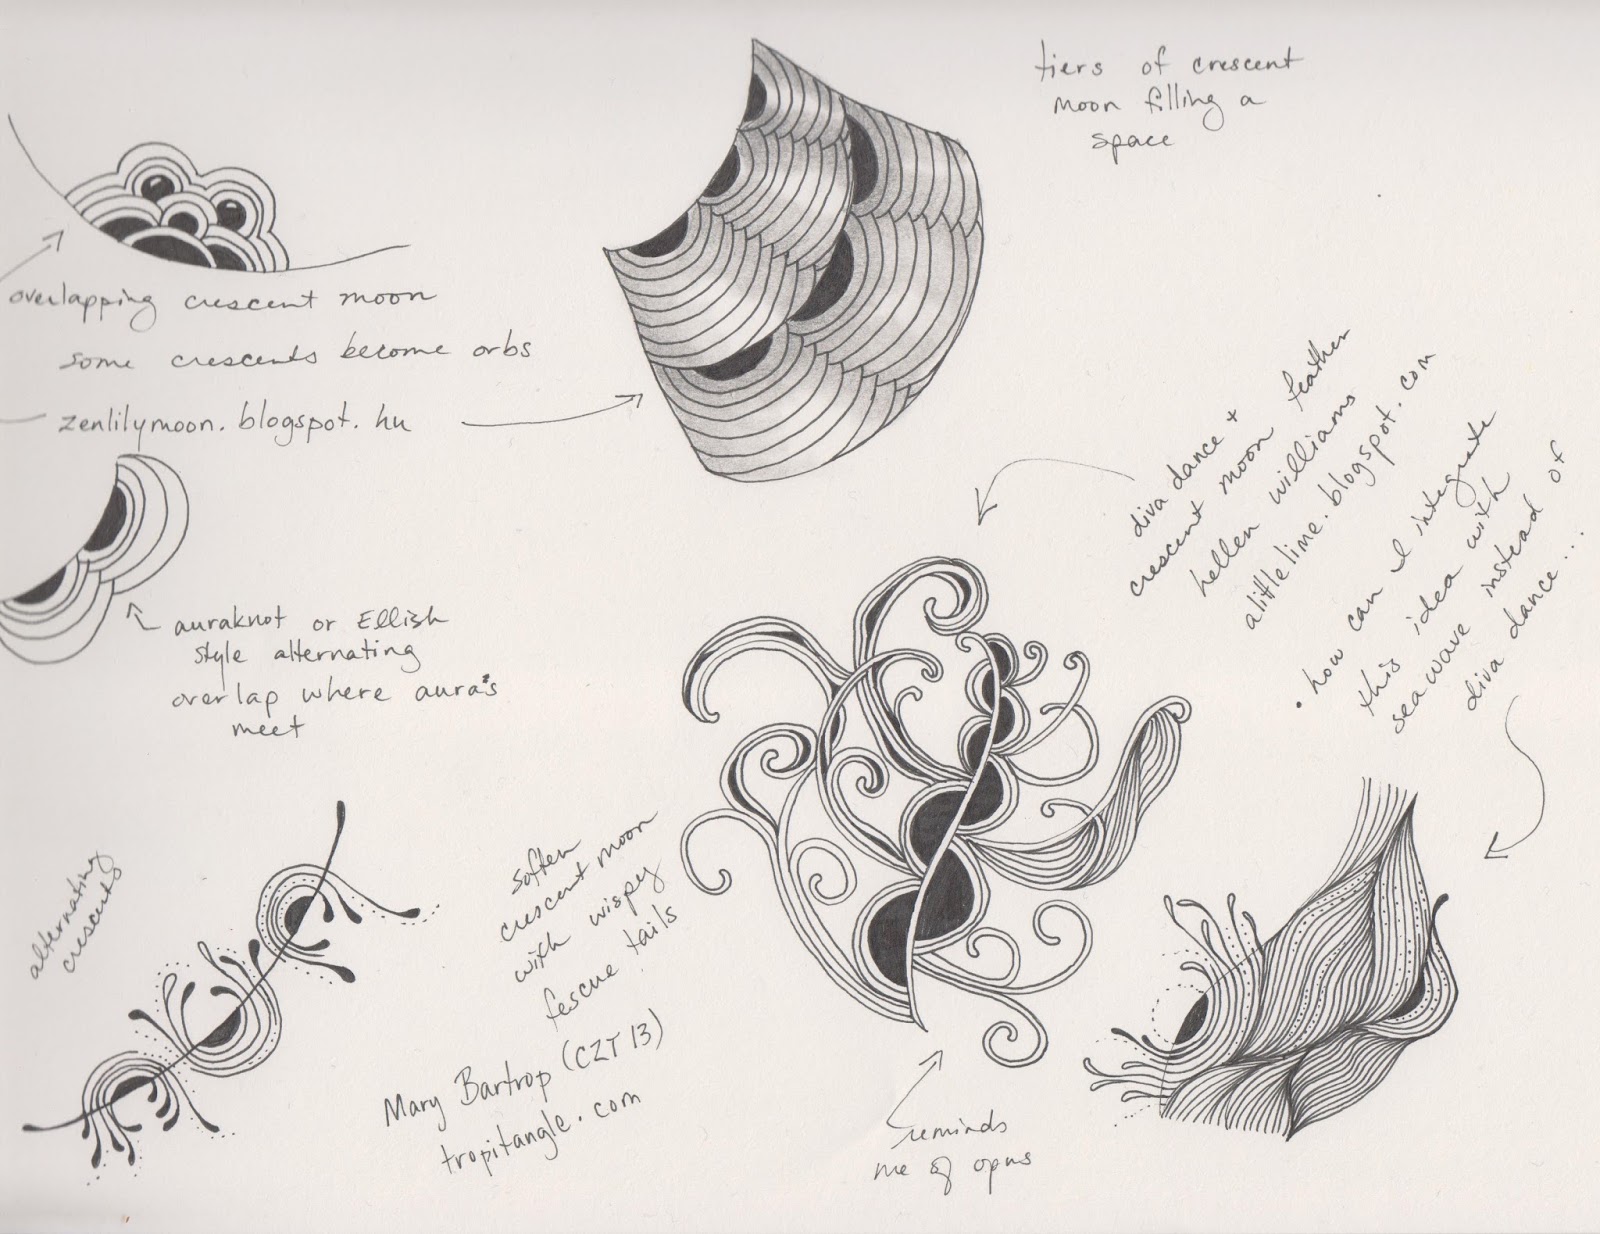 tiers of crescent
moon filling a
space
overlapping crescent moon
some crescents become orbs
zenlilymoon.blogspot.hu
diva dance +
crescent moon feather
hellen williams
alittlelime.blogspot.com
• how can I integrate
this idea with
seawave instead of
diva dance...
auraknot or Ellish
style alternating
overlap where aura's
meet
alternating
crescents
soften
crescent moon
with wispy
fescue tails
Mary Bartrop (CZT 13)
tropitangle.com
reminds
me of opus